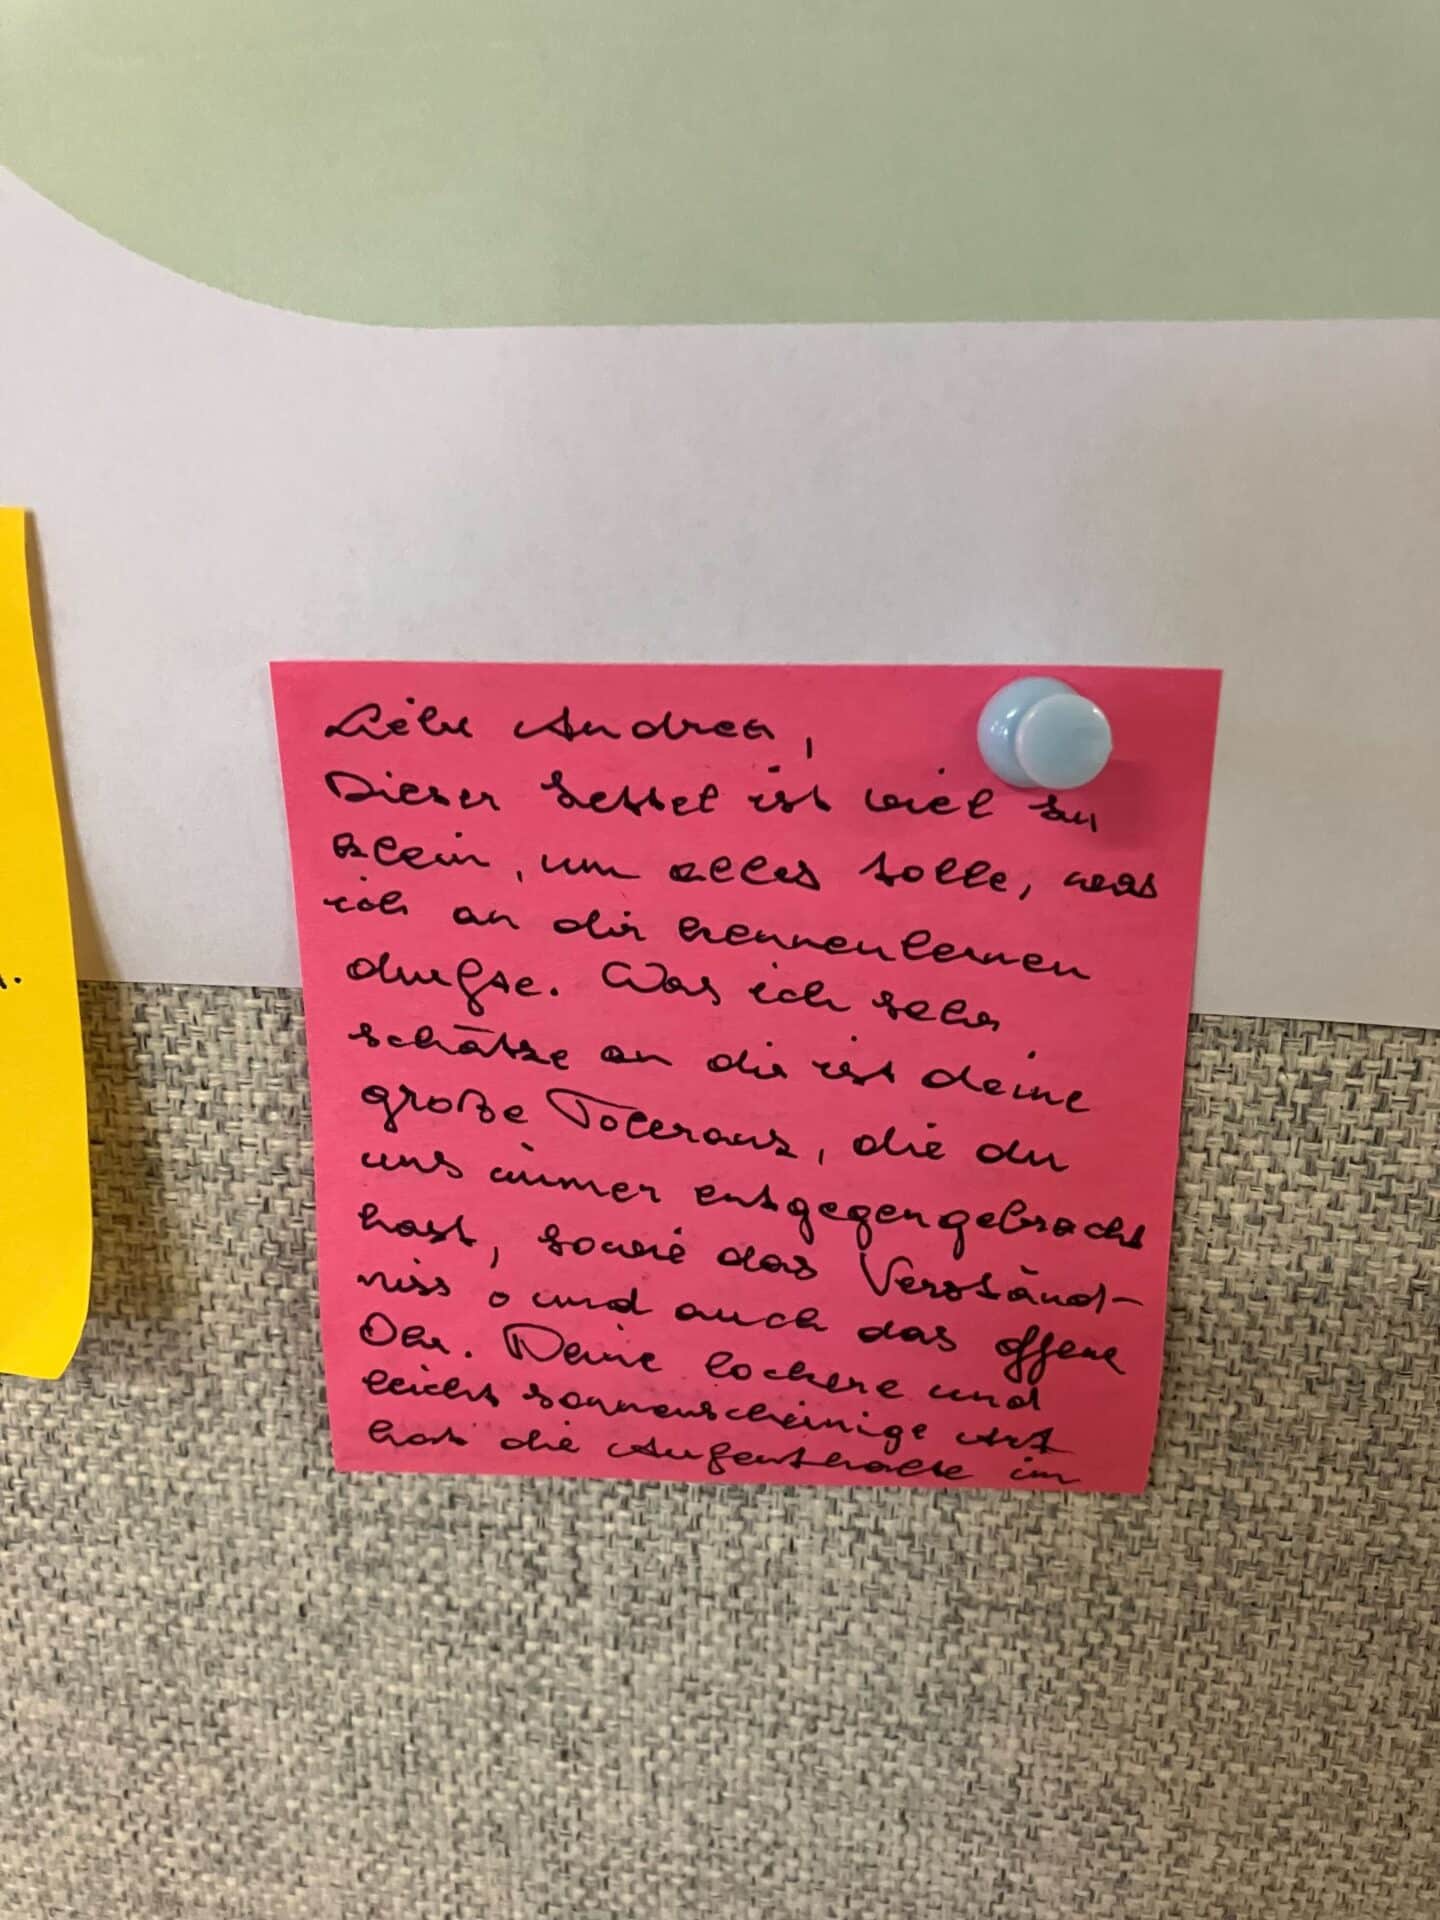 Liebe Andrea,
Dieser Zettel ist viel zu
klein, um alles Tolle, was
ich an dir kennenlernen
durfte. Was ich sehr
schätze an dir ist deine
große Toleranz, die du
uns immer entgegengebracht
hast, sowie das Verständ-
niss und auch das offene
Ohr. Deine lockere und
leicht sonnenscheinige Art
hat die Aufenthalte im